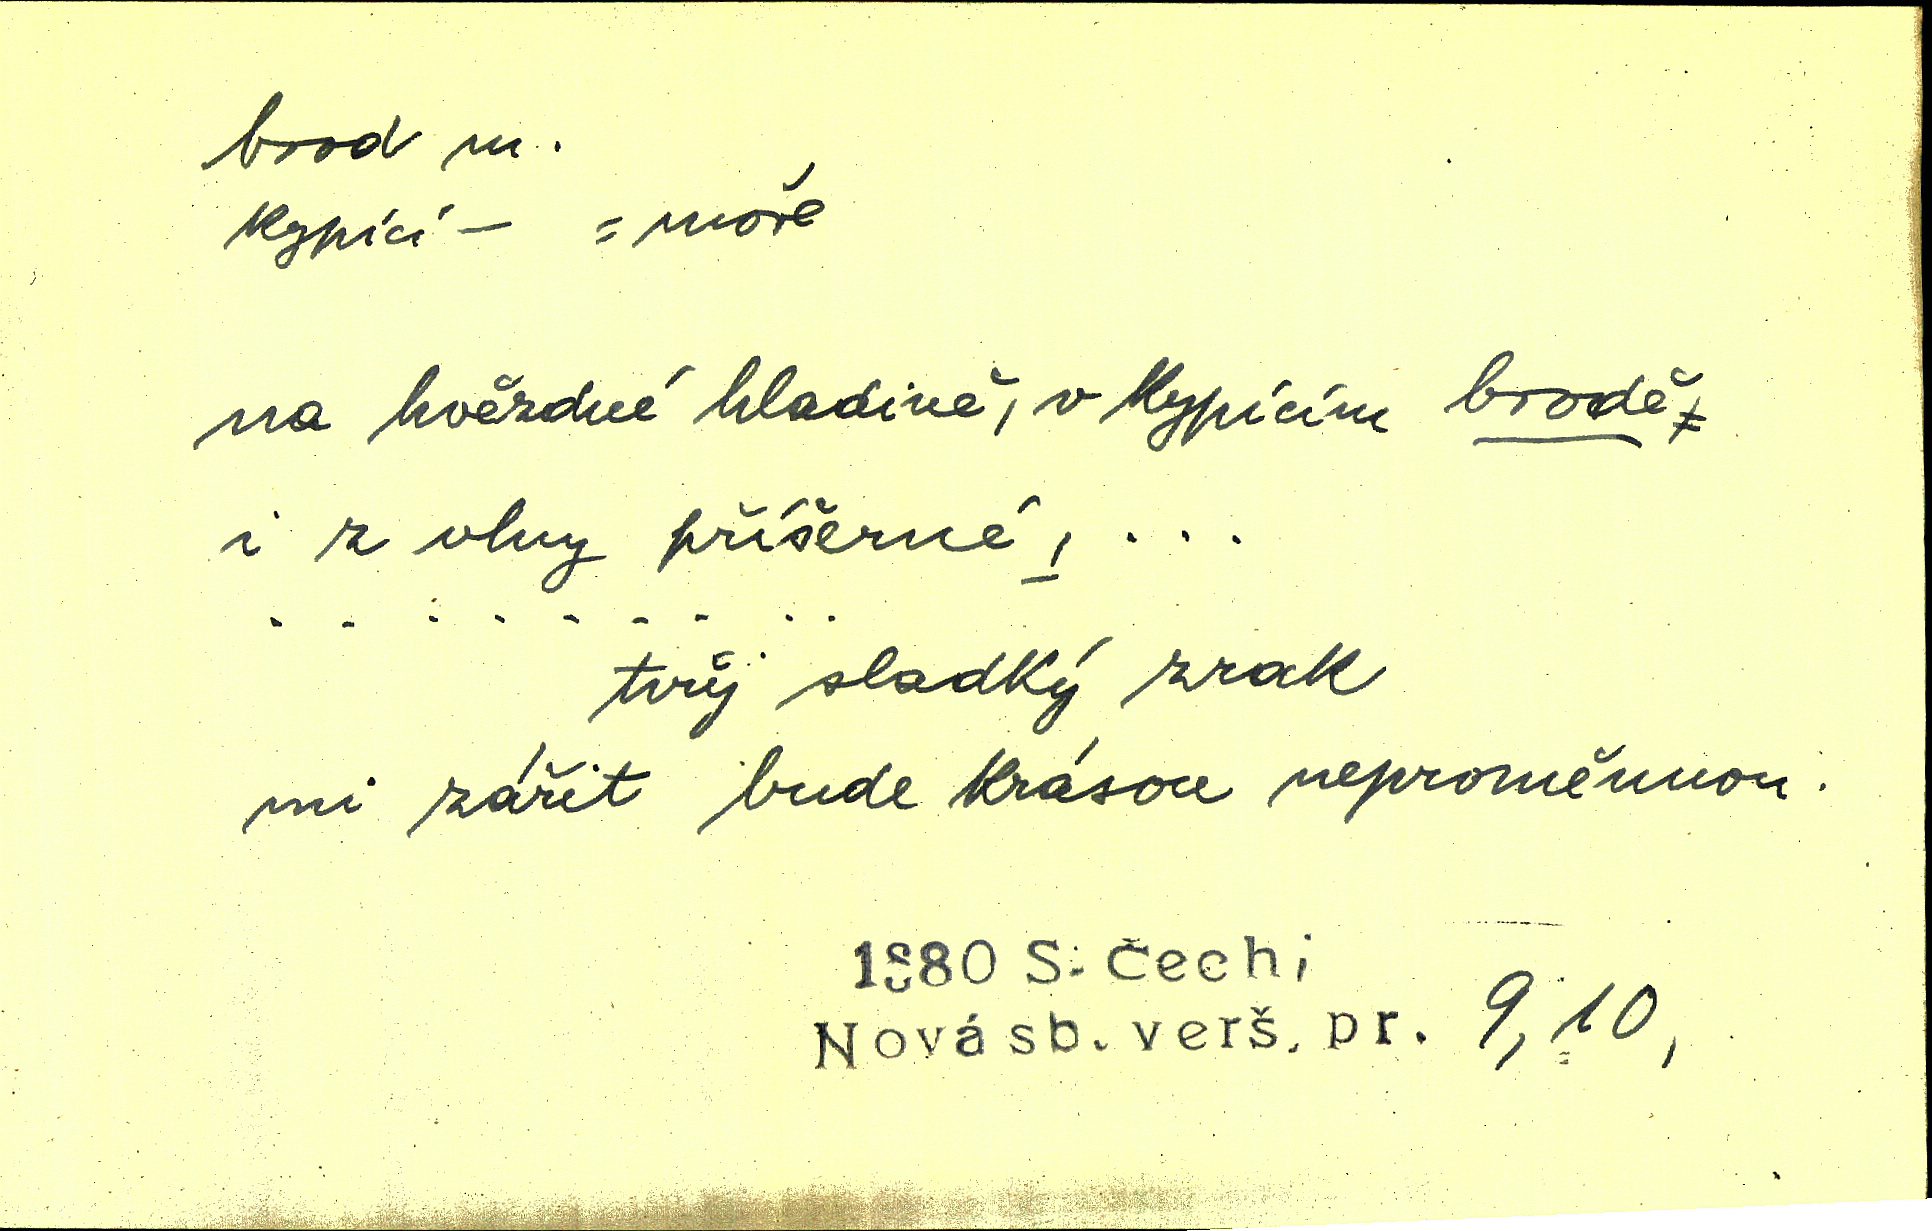 brod m.
kypící – = moře
na hvězdné hladině, v kypícím brodě,
i z vlny příšerné, ...
. . . . . . . . .
tvůj sladký zrak
mi zářit bude krásou neproměnnou.
1880 S. Čech,
Nová sb. verš. pr. 9, 10,